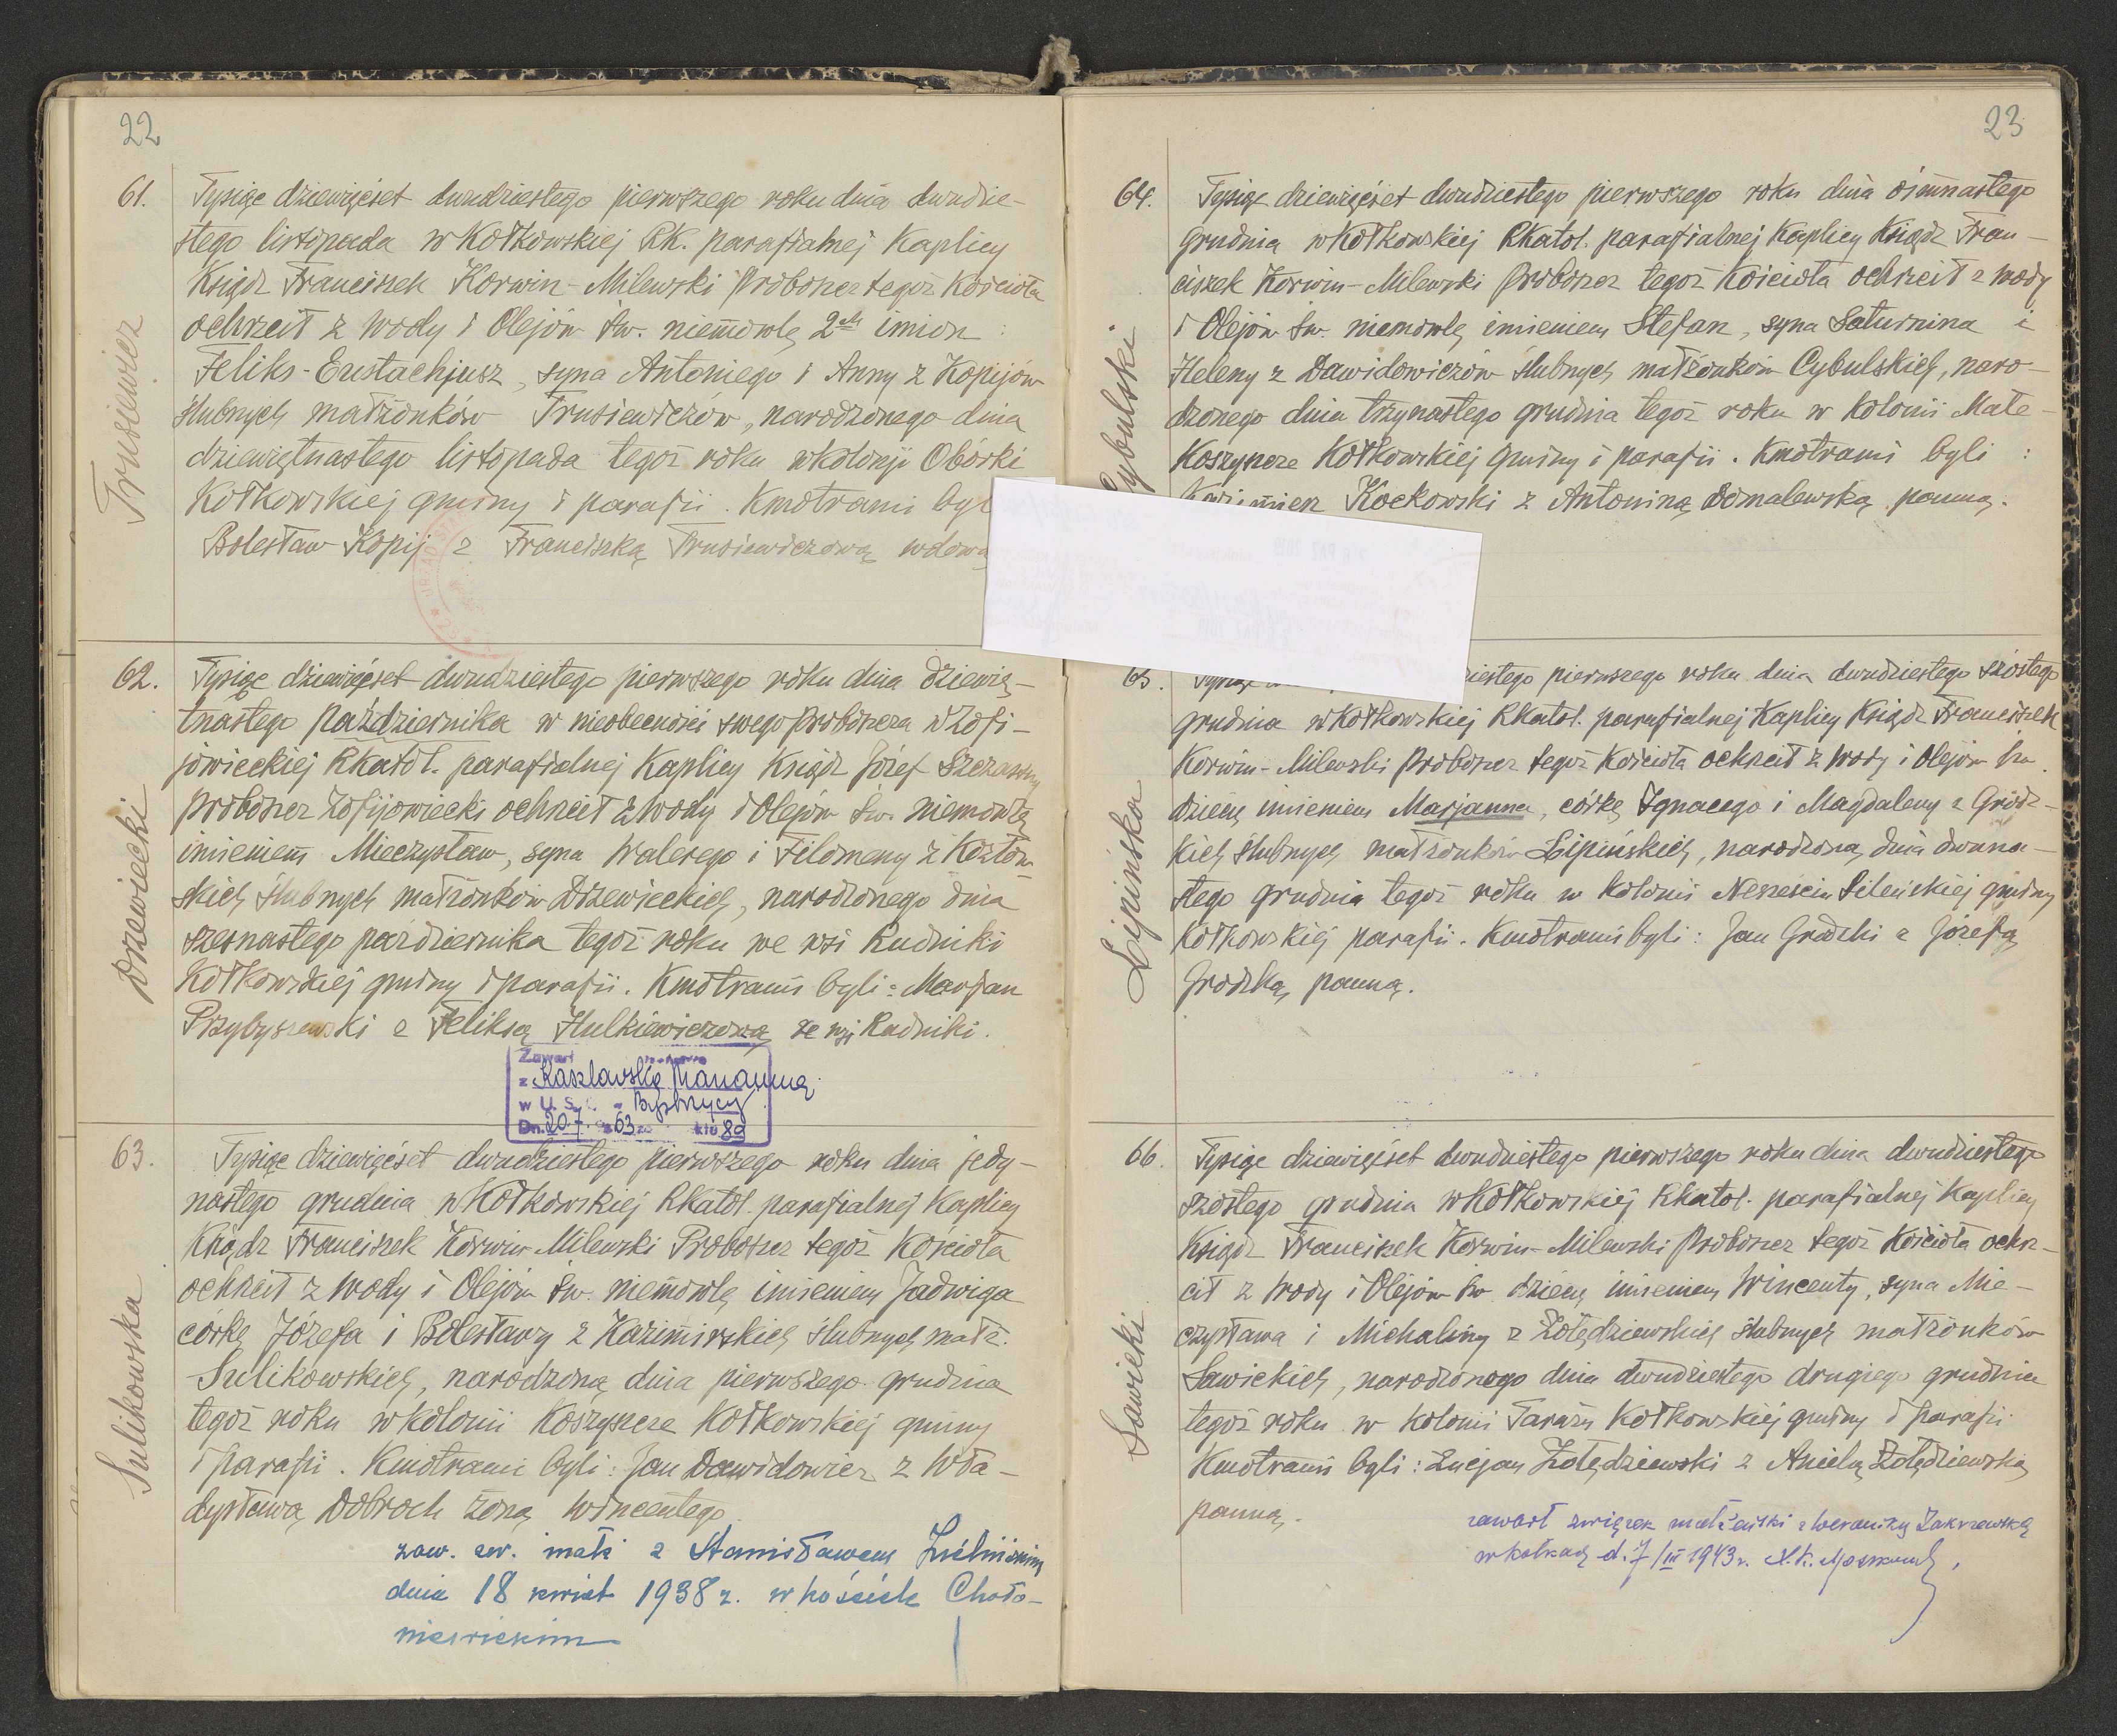 22
61.
Trusiewicz
Tysiąc dziewięćset dwudziestego pierwszego roku dnia dwudzie-
stego listopada w Kołkowskiej RK. parafialnej Kaplicy
Ksiądz Franciszek Korwin-Milewski Proboszcz tegoż Kościoła
ochrzcił z wody i Olejów św. niemowlę 2ch imion :
Feliks-Eustachjusz, syna Antoniego i Anny z Kopijów
ślubnych małżonków Trusiewiczów, narodzonego dnia
dziewiętnastego listopada tegoż roku w kolonji Obórki
Kołkowskiej gminy i parafii. Kmotrami byl
Bolesław Kopij z Franciszką Trusiewiczową wdową
62.
Drzewiecki
Tysiąc dziewięćset dwudziestego pierwszego roku dnia dziewię-
tnastego października w nieobecności swego Proboszcza w Zofi-
jowieckiej RKatol. parafialnej Kaplicy Ksiądz Józef Szczasny
Proboszcz Zofijowiecki ochrzcił z wody i Olejów św. niemowlę
imieniem Mieczysław, syna Walerego i Filomeny z Kozłow-
skich ślubnych małżonków Drzewieckich, narodzonego dnia
szesnastego października tegoż roku we wsi Rudniki
Kołkowskiej gminy i parafii. Kmotrami byli: Marjan
Przybyszewski z Feliksą Hulkiewiczową ze wsi Rudniki.
Zawarł
z Kaszlawską Marianną
w U. S. Bystrzycy
Dn. 20.7. 63 89
63.
Sulikowska
Tysiąc dziewięćset dwudziestego pierwszego roku dnia jedy-
nastego grudnia w Kołkowskiej RKatol. parafialnej Kaplicy
Ksiądz Franciszek Korwin Milewski Proboszcz tegoż Kościoła
ochrzcił z wody i Olejów św. niemowlę imieniem Jadwiga
córkę Józefa i Bolesławy z Kazimirskich ślubnych małż.
Sulikowskich, narodzoną dnia pierwszego grudnia
tegoż roku w kolonii Koszyszcze Kołkowskiej gminy
i parafii. Kmotrami byli: Jan Dawidowicz z Wła-
dysławą Dobroch żoną Wincentego
zaw. zw. małż z Stanisławem
dnia 18 kwiet 1938 r. w kościele Choło-
niewickim
23
64.
Cybulski
Tysiąc dziewięćset dwudziestego pierwszego roku dnia ośmnastego
Grudnia w Kołkowskiej RKatol. parafialnej Kaplicy Ksiądz Fran-
ciszek Korwin-Milewski Proboszcz tegoż Kościoła ochrzcił z wody
i Olejów św. niemowlę imieniem Stefan, syna Saturnina i
Heleny z Dawidowiczów ślubnych małżonków Cybulskich, naro-
dzonego dnia trzynastego grudnia tegoż roku w kolonii Małe-
Koszyszcze Kołkowskiej gminy i parafii. Kmotrami byli :
Kazimierz Kockowski z Antoniną Domalewską panną.
65.
Lipińska
Tysiąc dziestego pierwszego roku dnia dwudziestego szóstego
grudnia w Kołkowskiej RKatol. parafialnej Kaplicy Ksiądz Franciszek
Korwin-Milewski Proboszcz tegoż Kościoła ochrzcił z wody i Olejów św.
dziecię imieniem Marjanna, córkę Ignacego i Magdaleny z Gródz-
kich ślubnych małżonków Lipińskich, narodzoną dnia dwuna-
stego grudnia tegoż roku w kolonii Silenskiej gminy
Kołkowskiej parafii. Kmotrami byli: Jan Grodzki z Józefą
Grodzką panną.
66.
Sawicki
Tysiąc dziewięćset dwudziestego pierwszego roku dnia dwudziestego
szóstego grudnia w Kołkowskiej RKatol. parafialnej Kaplicy
Ksiądz Franciszek Korwin-Milewski Proboszcz tegoż Kościoła ochrz-
cił z wody i Olejów św. dziecię imieniem Wincenty, syna Mie-
czysława i Michaliny z Żołędziewskich ślubnych małżonków
Sawickich, narodzonego dnia dwudziestego drugiego grudnia
tegoż roku w kolonii Taraża Kołkowskiej gminy i parafii
Kmotrami byli: Lucjan Żołędziewski z Anielą Żołędziewską
panną.
zawarł związek małżeński z Weroniką Zakrzewską
w Kołkach d. 7/III 1943 r.